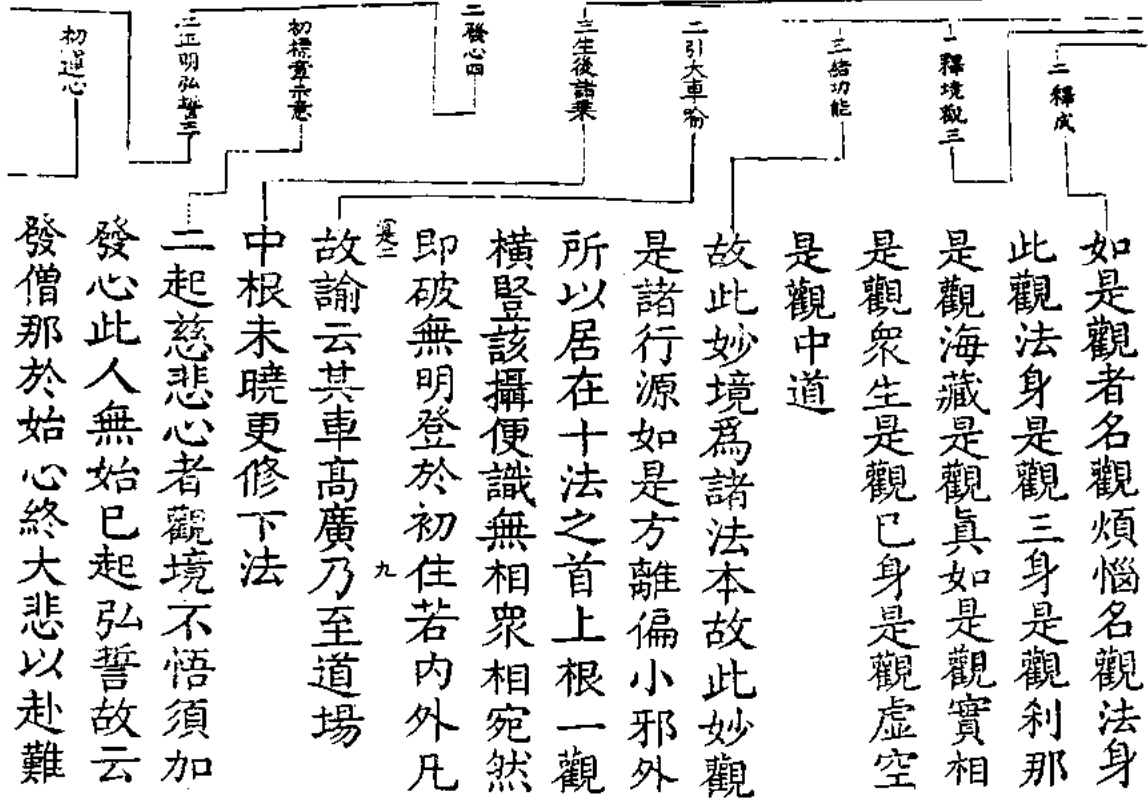 二釋成
一釋境觀三
三結功能
二引大車喻
三生後諸乘
二發心四
初標章示意
二正明弘誓三
初運心
如是觀者名觀煩惱名觀法身
此觀法身是觀三身是觀刹那
是觀海藏是觀眞如是觀實相
是觀衆生是觀已身是觀虛空
是觀中道
故此妙境爲諸法本故此妙觀
是諸行源如是方離偏小邪外
所以居在十法之首上根一觀
橫豎該攝便識無相衆相宛然
即破無明登於初住若内外凡
九
故諭云其車高廣乃至道場
中根未曉更修下法
二起慈悲心者觀境不悟須加
發心此人無始已起弘誓故云
發僧那於始心終大悲以赴難